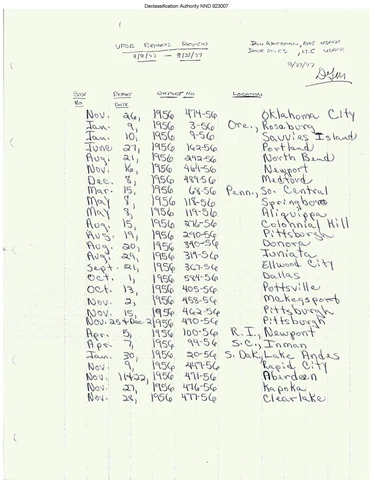 Declassification Authority NND 923007
UFOB REPORTS REVIEW
8/8/77 — 8/31/77
BOX REPORT REPORT NO LOCATION
NO. DATE
Nov. 26, 1956 474-56 Oklahoma City
Jan. 9, 1956 3-56 Ore., Roseburg
Jan. 10, 1956 9-56 Sauvies Island
June 27, 1956 162-56 Portland
Aug. 21, 1956 292-56 North Bend
Nov. 16, 1956 464-56 Newport
Dec. 8, 1956 489-56 Medford
Mar. 15, 1956 68-56 Penn., So. Central
May 8, 1956 118-56 Springboro
May 8, 1956 119-56 Aliquippa
Aug. 15, 1956 276-56 Colonnial Hill
Aug. 19, 1956 290-56 Pittsburgh
Aug. 20, 1956 340-56 Donora
Aug. 29, 1956 319-56 Juniata
Sept. 21, 1956 367-56 Ellwood City
Oct. 1, 1956 584-56 Dallas
Oct. 13, 1956 405-56 Pottsville
Nov. 2, 1956 453-56
Nov. 15, 1956 462-56 Pittsburgh
Nov. 25 + Dec. 2, 1956 490-56 Pittsburgh
Apr. 5, 1956 100-56 R.I., Newport
Apr. 7, 1956 94-56 S.C., Inman
Jan. 30, 1956 20-56 S. Dak., Lake Andes
Nov. 9, 1956 447-56 Rapid City
Nov. 14+22, 1956 471-56 Aberdeen
Nov. 27, 1956 476-56 Kapoka
Nov. 28, 1956 477-56 Clearlake